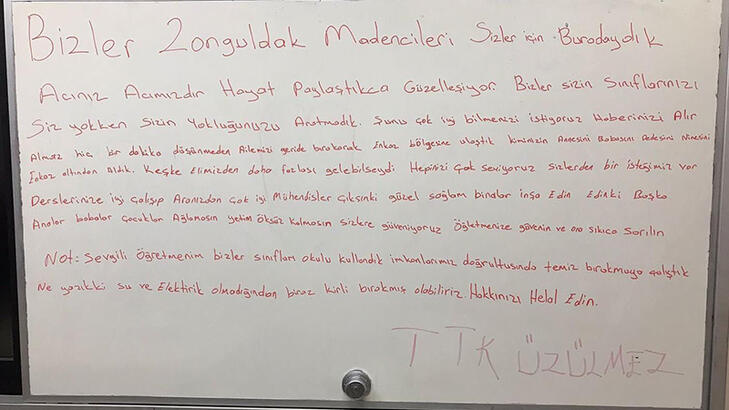 Bizler Zonguldak Madencileri Sizler için Buradaydık
Acınız Acımızdır Hayat Paylaştıkca Güzelleşiyor. Bizler sizin Sınıflarınızı
Siz yokken Sizin Yokluğunuzu Aratmadık. Şunu çok iyi bilmenizi istiyoruz Haberinizi Alır
Almaz hiç bir dakika düşünmeden Ailemizi geride bırakarak Enkaz bölgesine ulaştık kiminizin Annesini Babasını Dedesini Ninesini
Enkaz altından Aldık. Keşke Elimizden daha fazlası gelebilseydi Hepinizi Çok seviyoruz sizlerden bir isteğimiz var
Derslerinize iyi çalışıp Aranızdan Çok iyi Mühendisler Çıksınki güzel sağlam binalar inşa Edin Edinki Başka
Analar babalar çocuklar Ağlamasın yetim öksüz kalmasın sizlere güveniyoruz Öğretmenize güvenin ve ona sıkıca sarılın
Not: Sevgili Öğretmenim bizler sınıfları okulu kullandık imkanlarımız doğrultusunda temiz bırakmaya çalıştık
Ne yazıkki su ve Elektirik olmadığından biraz kirli bırakmış olabiliriz. Hakkınızı Helal Edin.
TTK ÜZÜLMEZ